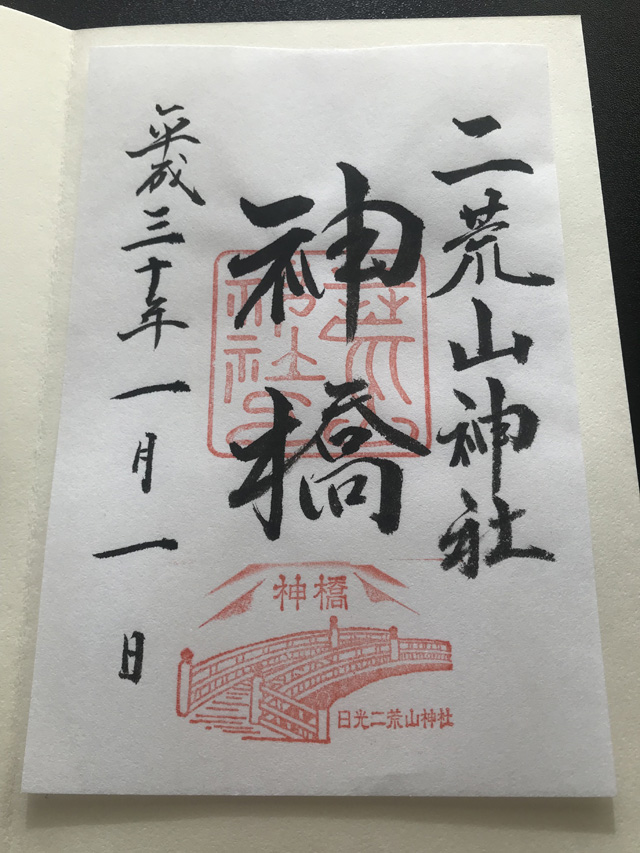 二荒山神社
神橋
平成三十年一月一日
神橋
日光二荒山神社